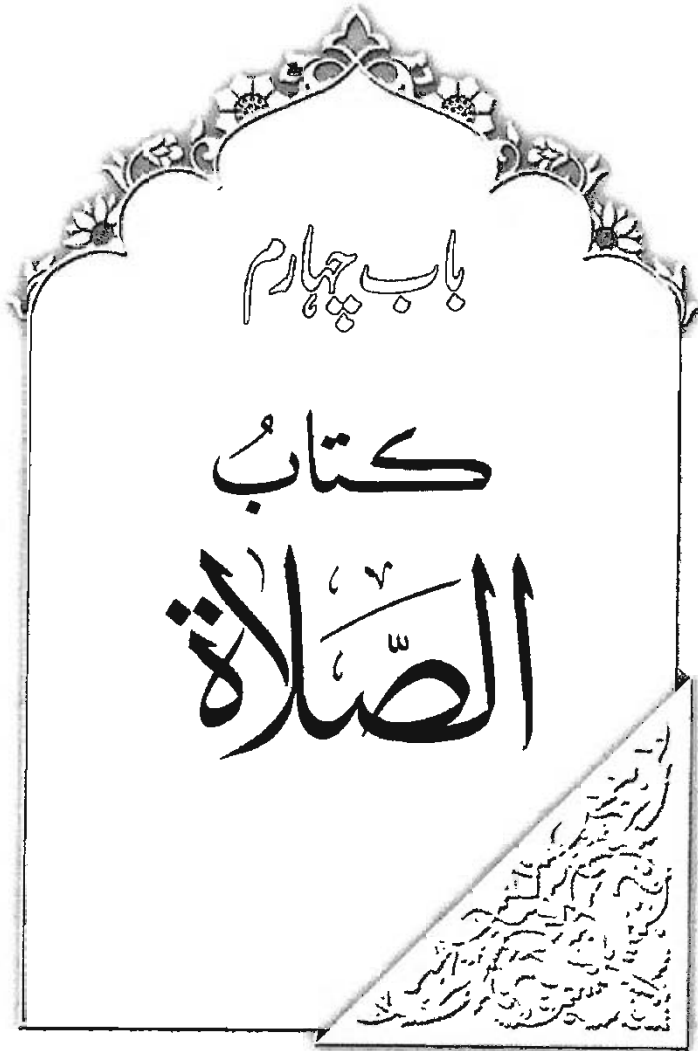 باب چہارم
كتابُ
الصَّلاة